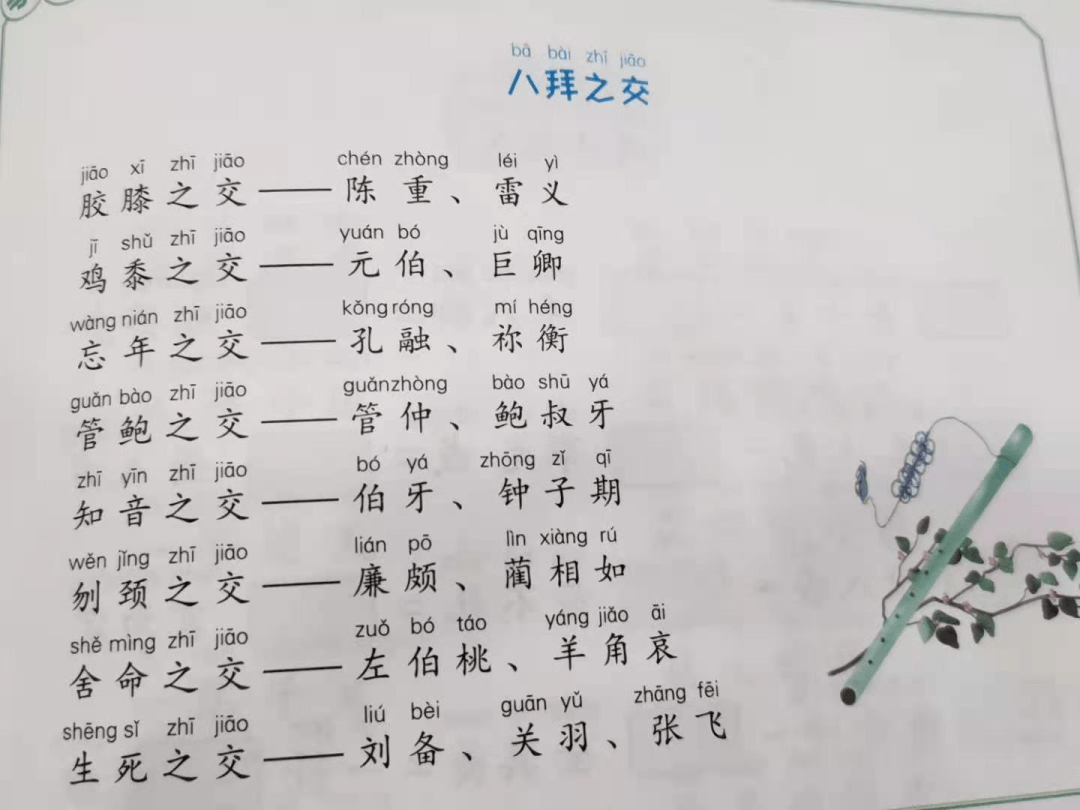 bā bài zhī jiāo
八拜之交
jiāo xī zhī jiāo chén zhòng léi yì
胶膝之交——陈重、雷义
jī shǔ zhī jiāo yuán bó jù qīng
鸡黍之交——元伯、巨卿
wàng nián zhī jiāo kǒng róng mí héng
忘年之交——孔融、祢衡
guǎn bào zhī jiāo guǎn zhòng bào shū yá
管鲍之交——管仲、鲍叔牙
zhī yīn zhī jiāo bó yá zhōng zǐ qī
知音之交——伯牙、钟子期
wěn jǐng zhī jiāo lián pō lìn xiàng rú
刎颈之交——廉颇、蔺相如
shě mìng zhī jiāo zuǒ bó táo yáng jiǎo āi
舍命之交——左伯桃、羊角哀
shēng sǐ zhī jiāo liú bèi guān yǔ zhāng fēi
生死之交——刘备、关羽、张飞